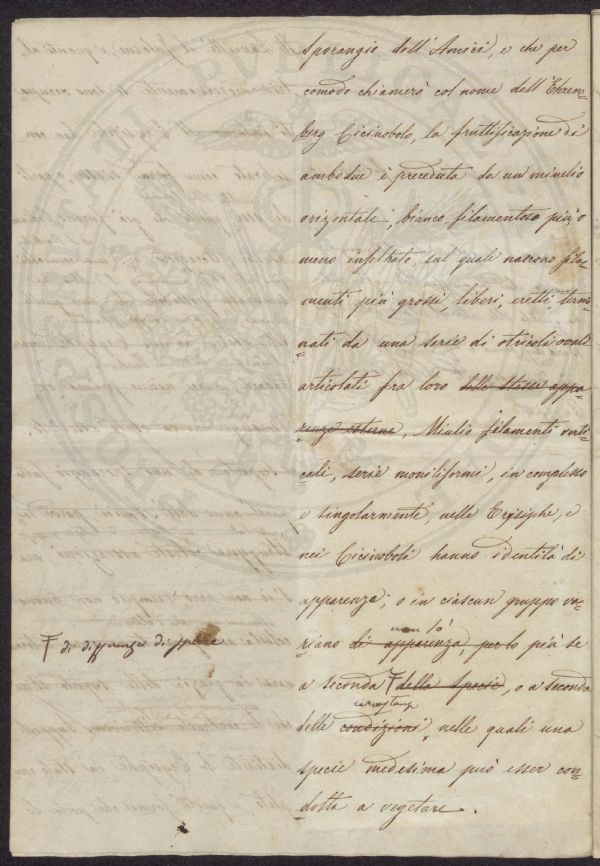 sporangio dell'Amici, e che per
comodo chiamerò col nome dell'Ehren-
berg Cicinobolo, la fruttificazione di
ambedue è preceduta da un micelio
orizontale, bianco, filamentoso più o
meno infeltrato, sul quale nascono fila-
menti più grossi, liberi, eretti, termi-
nati da una serie di otricoli ovali
articolati fra loro delle stesse appa-
renze esterne, Micelio filamenti verti-
cali, serie moniliformi, in complesso
e singolarmente, nelle Erysiphe, e
nei Cicinoboli hanno identità di
apparenza; o in ciascun gruppo va-
non là
riano di apparenza, per lo più se
Ŧ di differenza di specie
a seconda Ŧ della specie, o a seconda
delle condizioni, nelle quali una
specie medesima può esser con-
dotta a vegetare.